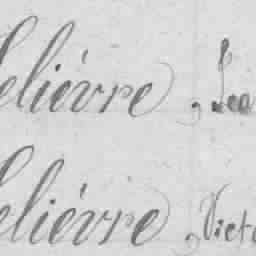 Lelièvre, Lea
Lelièvre, Victo